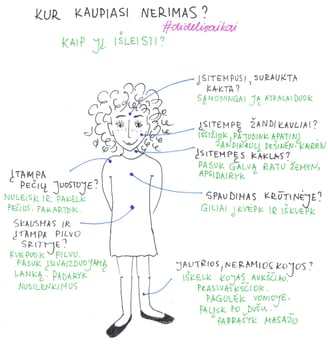 KUR KAUPIASI NERIMAS?
#didelivaikai
KAIP JĮ IŠLEISTI?
ĮSITEMPUSI, SURAUKTA
KAKTA?
SĄMONINGAI JĄ ATPALAIDUOK
ĮSITEMPĘ ŽANDIKAULIAI?
IŠSIŽIOK, PAJUDINK APATINĮ
ŽANDIKAULĮ DEŠINĖN-KAIRĖN
ĮSITEMPĘS KAKLAS?
PASUK GALVĄ RATU ŽEMYN,
APSIDAIRYK
ĮTAMPA
PEČIŲ JUOSTOJE?
NULEISK IR PAKELK
PEČIUS. PAKARTOK.
SPAUDIMAS KRŪTINĖJE?
GILIAI ĮKVĖPK IR IŠKVĖPK
SKAUSMAS IR
ĮTAMPA PILVO
SRITYJE?
KVĖPUOK PILVU.
PASUK ĮSIVAIZDUOJAMĄ
LANKĄ. PADARYK
NUSILENKIMUS
JAUTRIOS, NERAMIOS KOJOS?
IŠKELK KOJAS AUKŠČIAU.
PRASIVAIKŠČIOK.
PAGULĖK VONIOJE.
PALĮSK PO DUŠU.
PAPRAŠYK MASAŽO